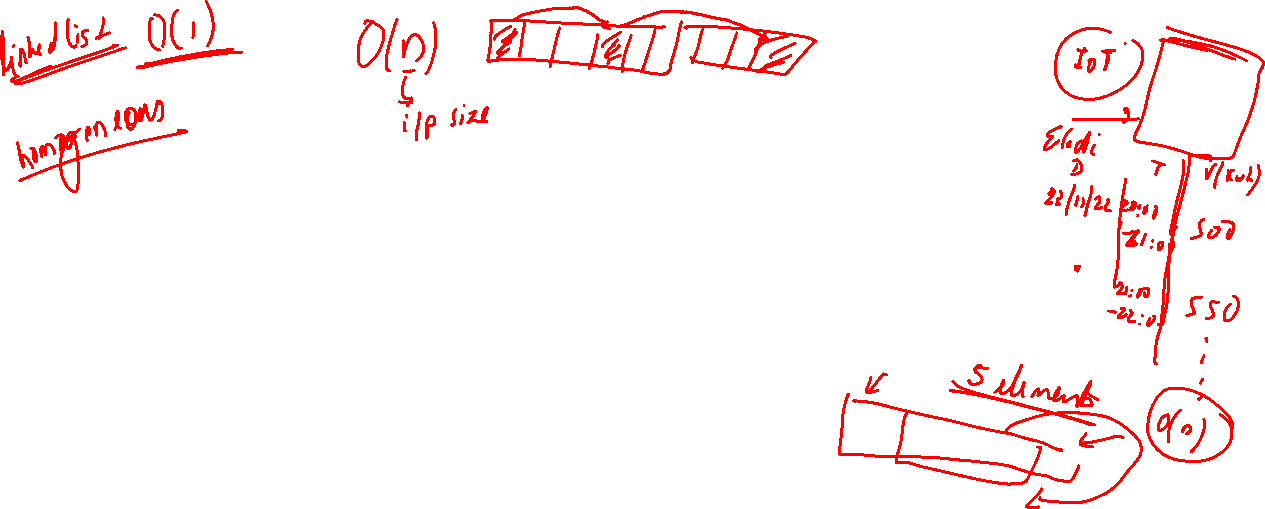 linked list O(1)
homogeneous
O(n)
i/p size
IOT
D T V(kwh)
20:00
-21:0 500
21:00
-22:0 550
5 elements
O(n)